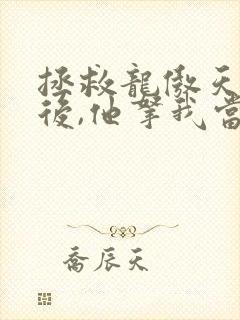 拯救龍傲天
後,他拏我當
喬辰天